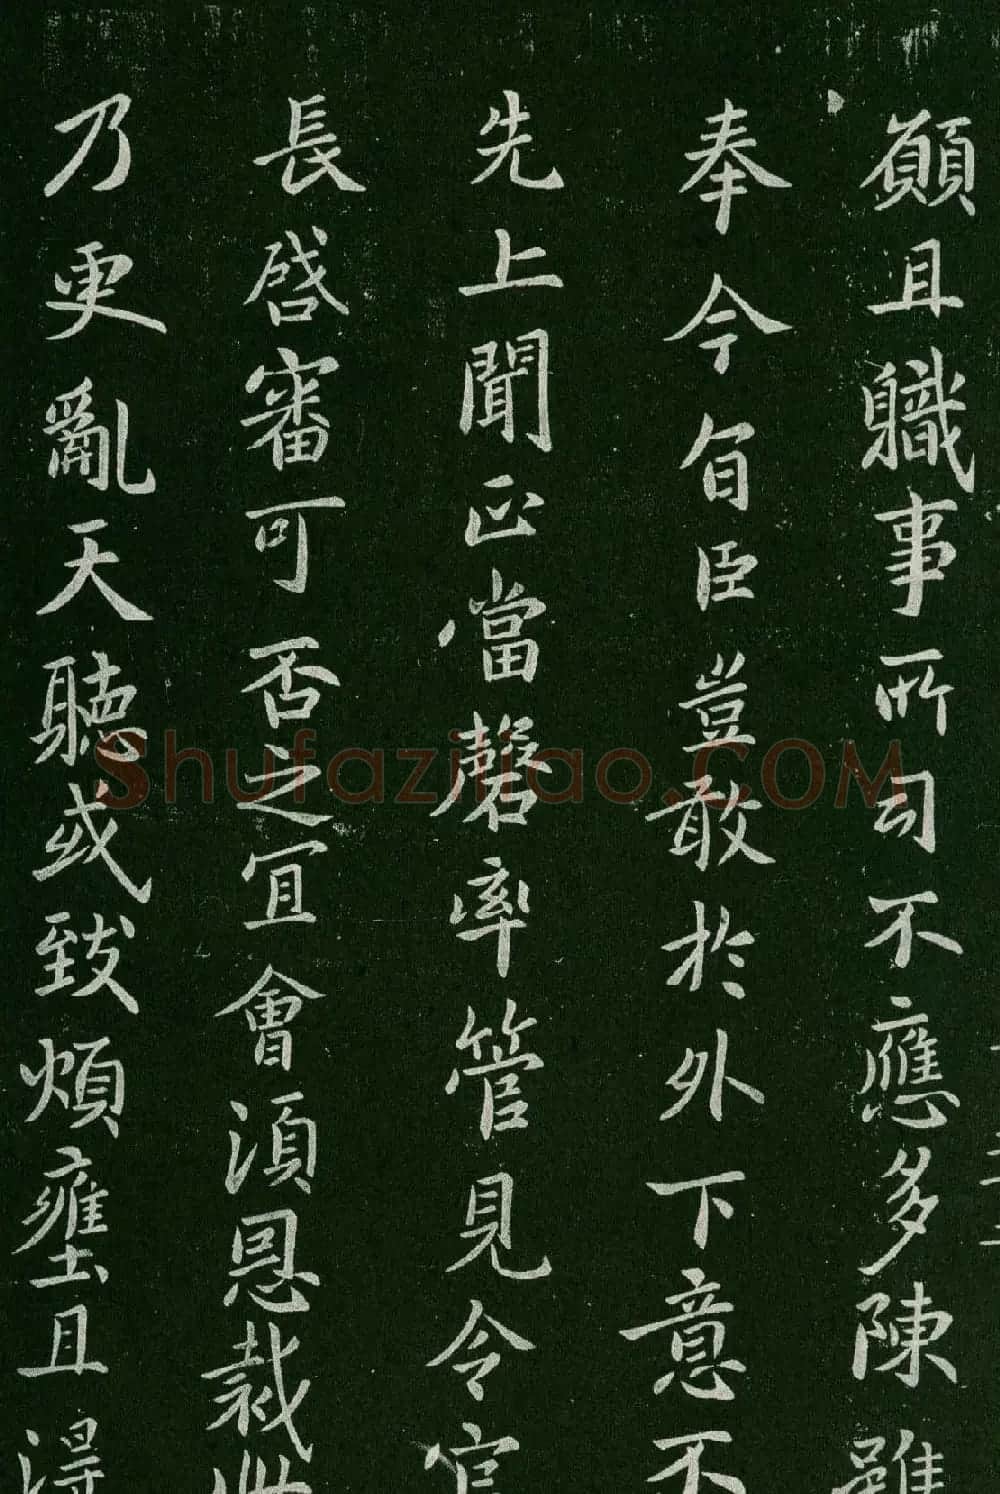 願且職事所司不應多陳雖
奉今旨臣豈敢於外下意不
先上聞政當罄率管見令官
長啓審可否之宜會須恩裁此
乃更亂天聽或致煩壅且得
Shufaziliao.COM